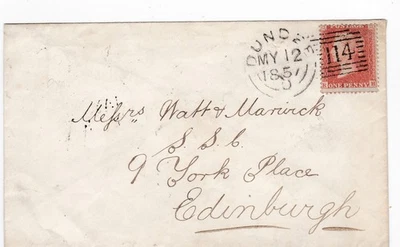 DUNDEE
MY 12
1857
D
114
ONE PENNY
Messrs Watt & Marwick
S.S.C.
9 York Place
Edinburgh